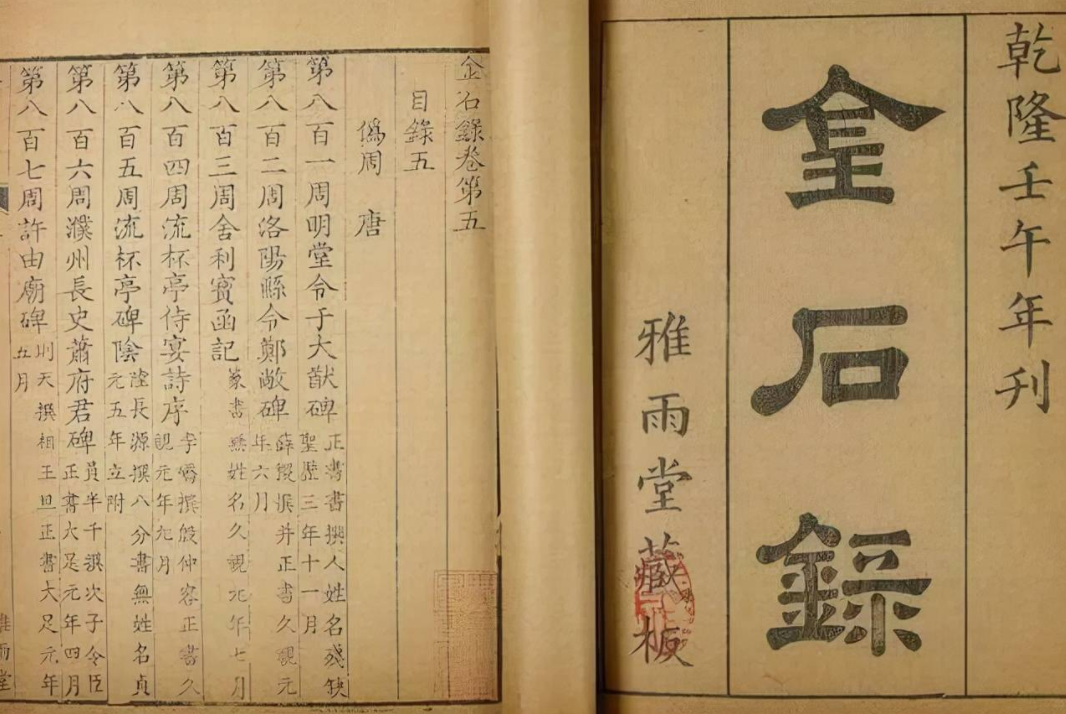 乾隆壬午年刊
金石錄
雅雨堂藏板
金石錄卷第五
目錄五
僞周 唐
第八百一周明堂令于大猷碑 正書書撰人姓名殘缺聖歴三年十一月
第八百二周洛陽縣令鄭敞碑 薛稷撰并正書久視元年六月
第八百三周舍利寶函記 篆書無姓名久視元年七月
第八百四周流杯亭侍宴詩序 李嶠撰殷仲容正書久視元年九月
第八百五周流杯亭碑陰 陸長源撰八分書無姓名貞元五年立附
第八百六周濮州長史蕭府君碑 員半千撰次子令臣正書大足元年四月
第八百七周許由廟碑 則天撰相王旦正書大足元年五月
雅雨堂